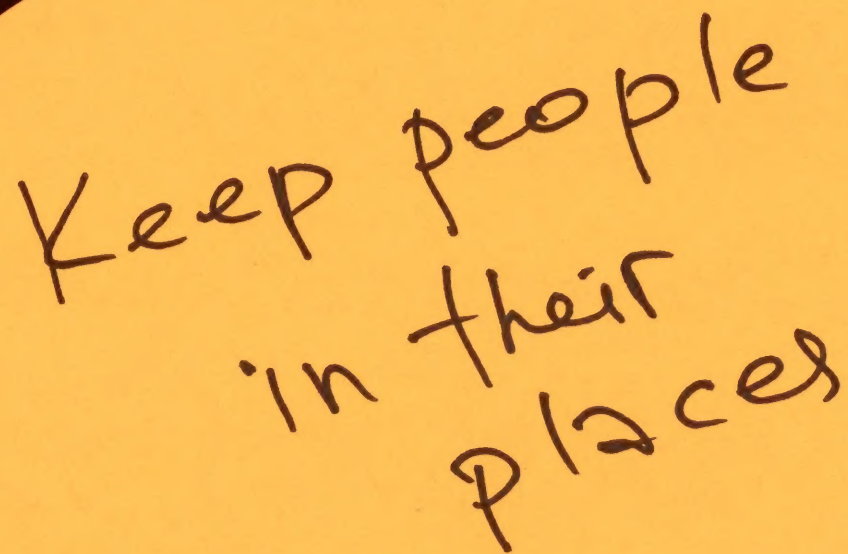 Keep people
in their
places